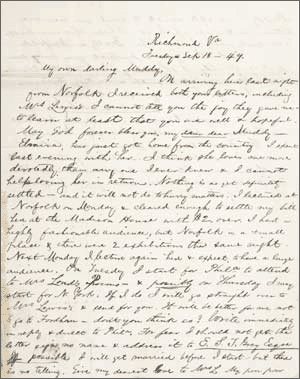 Richmond Va
Tuesday — Sep 18 — 49.
My own darling Muddy,
On arriving here last night
from Norfolk I received both your letters, including
Mrs Lewis's. I cannot tell you the joy they gave me
to learn at least that you are well & hopeful.
May God forever bless you, my dear dear Muddy —
Elmira has just got home from the country. I spent
last evening with her. I think she loves me more
devotedly than any one I ever knew & I cannot
help loving her in return. Nothing is as yet
settled — and it will not do to hurry matters. I lectured at
Norfolk on Monday & cleared enough to settle my bill
here at the Madison House with $2 over. I had a
highly fashionable audience, but Norfolk is a small
place & there were 2 exhibitions the same night.
Next Monday I lecture again here & expect to have a large
audience. On Tuesday I start for Phila to attend
to Mrs Loud's Poems — & possibly on Thursday I may
start for N. York. If I do I will go straight over to
Mrs Lewis's & send for you. It will be better for me not
to go to Fordham — don't you think so? Write immediately
in reply & direct to Phila. For fear I should not get the
letter, sign no name & address it to E. S. T. Grey Esqre.
If possible I will get married before I start — but there
is no telling. Give my dearest love to Mrs L. My poor